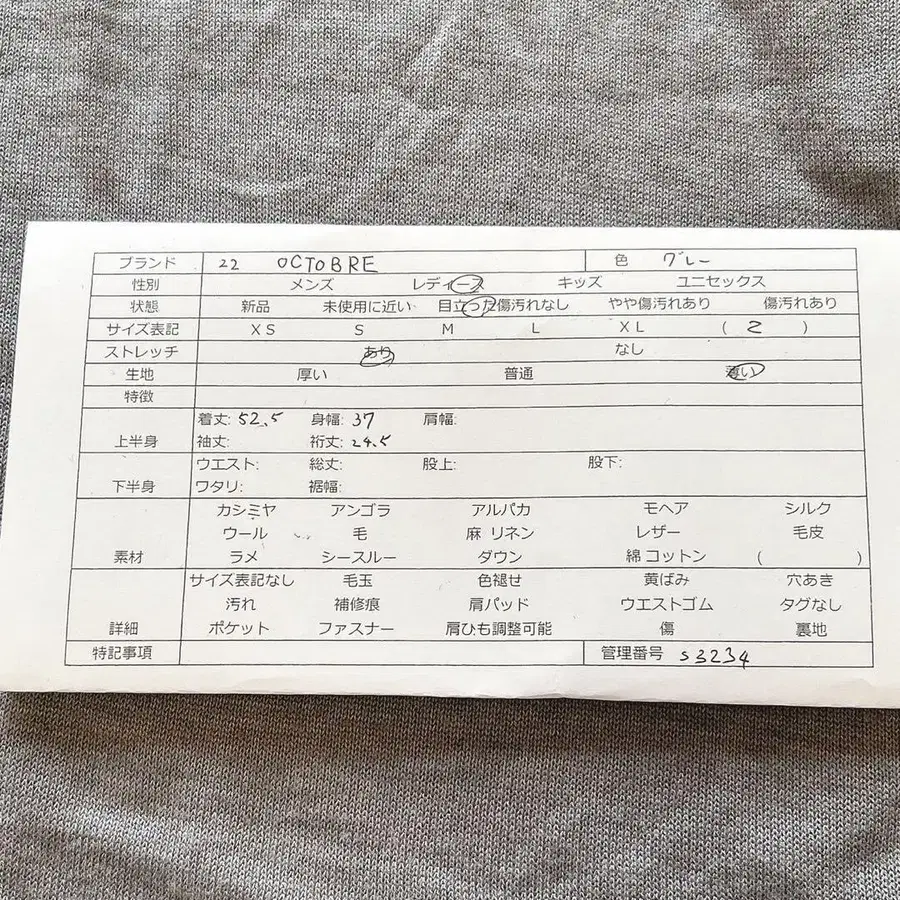 ブランド 22 OCTOBRE 色 グレー
性別 メンズ レディース キッズ ユニセックス
状態 新品 未使用に近い 目立った傷汚れなし やや傷汚れあり 傷汚れあり
サイズ表記 XS S M L XL ( 2 )
ストレッチ あり なし
生地 厚い 普通 薄い
特徴
着丈: 52.5 身幅: 37 肩幅:
上半身 袖丈: 裄丈: 24.5
ウエスト: 総丈: 股上: 股下:
下半身 ワタリ: 裾幅:
カシミヤ アンゴラ アルパカ モヘア シルク
ウール 毛 麻 リネン レザー 毛皮
素材 ラメ シースルー ダウン 綿 コットン ( )
サイズ表記なし 毛玉 色褪せ 黄ばみ 穴あき
汚れ 補修痕 肩パッド ウエストゴム タグなし
詳細 ポケット ファスナー 肩ひも調整可能 傷 裏地
特記事項 管理番号 s3234